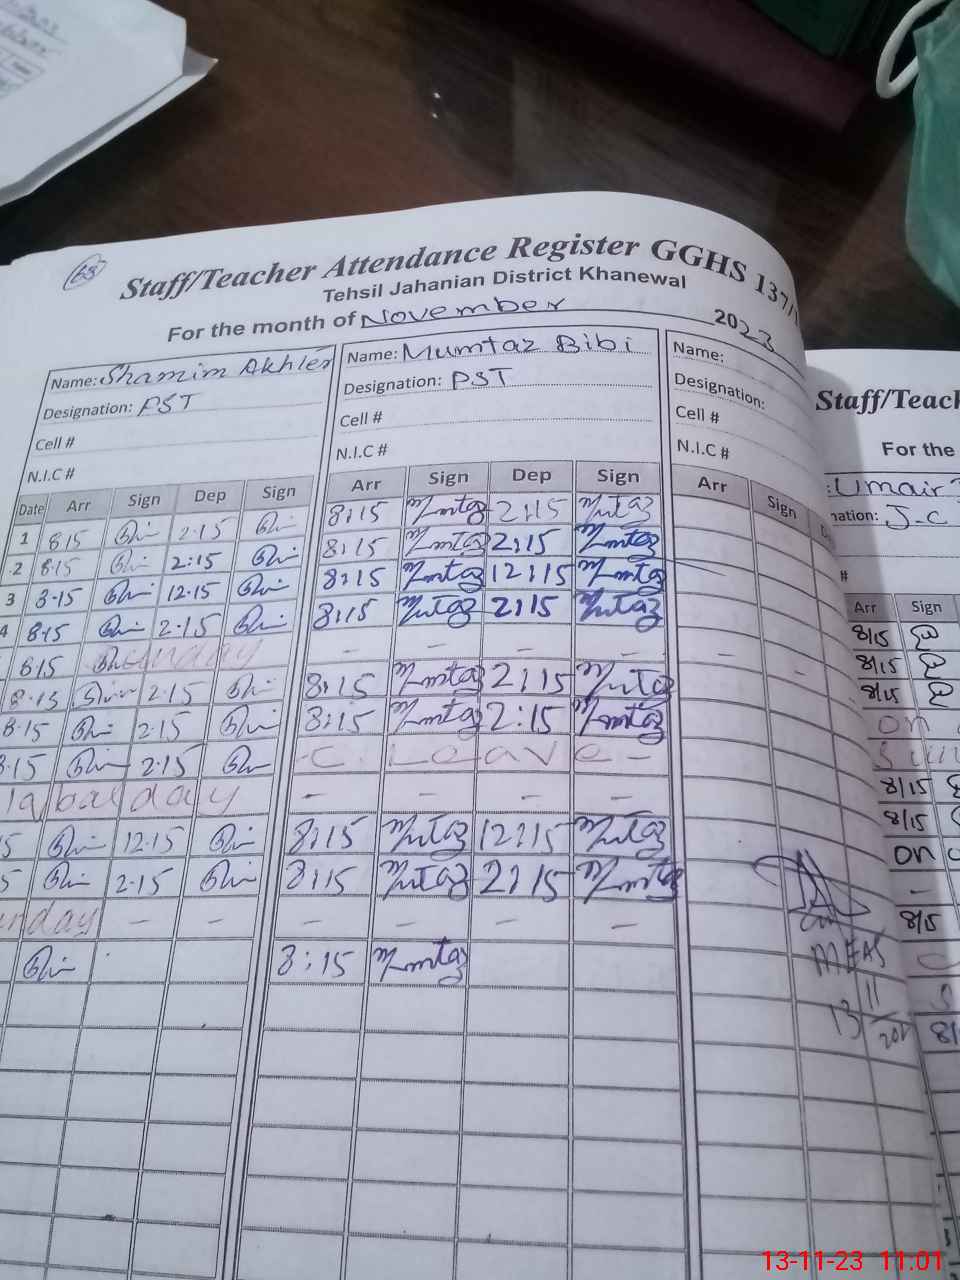 68
Staff/Teacher Attendance Register GGHS 137/1
Tehsil Jahanian District Khanewal
For the month of November 2023
Name: Shamim Akhter
Designation: PST
Cell #
N.I.C #
Name: Mumtaz Bibi
Designation: PST
Cell #
N.I.C #
Name:
Designation:
Cell #
N.I.C #
Date Arr Sign Dep Sign Arr Sign Dep Sign Arr Sign
1 8:15 2:15 8:15 Mumtaz 2:15 Mumtaz
2 8:15 2:15 8:15 Mumtaz 2:15 Mumtaz
3 8:15 12:15 8:15 Mumtaz 12:15 Mumtaz
4 8:15 2:15 8:15 Mumtaz 2:15 Mumtaz
8:15 Sunday - - - - - -
8:15 2:15 8:15 Mumtaz 2:15 Mumtaz
8:15 2:15 8:15 Mumtaz 2:15 Mumtaz
8:15 2:15 - C. Leave -
Iqbal day - - - -
5 12:15 8:15 Mumtaz 12:15 Mumtaz
5 2:15 8:15 Mumtaz 2:15 Mumtaz
nday - - - - - -
8:15 Mumtaz
MEAS
13/11/202
Staff/Teach
For the
: Umair
nation: J.C
#
Arr Sign
8/15
8/15
8/15
on
8/15
8/15
on
-
8/15
8/
13-11-23 11:01